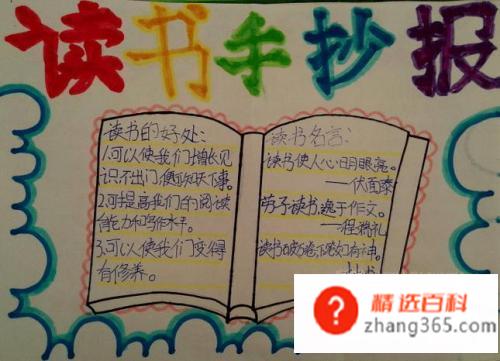 读书手抄报
读书的好处:
1.可以使我们增长见
识不出门,便知天下事。
2.可提高我们的阅读
能力和写作水平。
3.可以使我们变得
有修养。
读书名言:
读书使人心明眼亮。
——伏
劳于读书,逸于作文。
——程
读书破万卷,下笔如有神。
?
精选百科
zhang365.com